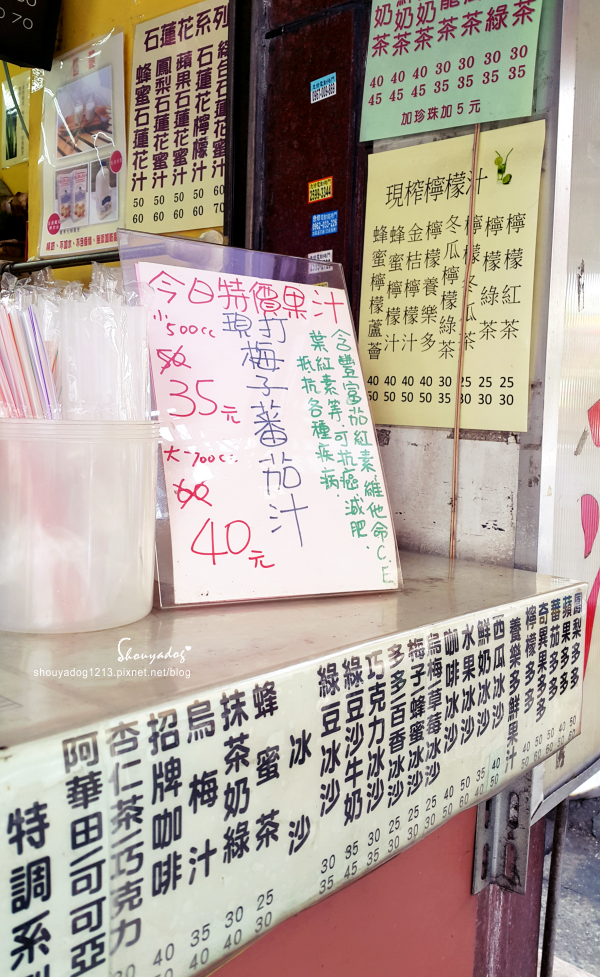 石蓮花系列
蜂蜜石蓮花汁 50 60
鳳梨石蓮花蜜汁 50 60
蘋果石蓮花蜜汁 50 60
石蓮花檸檬汁 50 60
綜合石蓮花蜜汁 60 70
40 40 40 35 30 30 30
45 45 45 35 35 35
加珍珠加5元
現榨檸檬汁
蜂蜜檸檬蘆薈 40 50
蜂蜜檸檬汁 40 50
金桔檸檬汁 40 50
檸檬養樂多 40 50
冬瓜檸檬綠茶 30 35
檸檬冬瓜茶 25 30
檸檬綠茶 25 30
檸檬紅茶 25 30
今日特價果汁
現打梅子蕃茄汁
小500cc
50
35元
大-700cc
60
40元
含豐富茄紅素.維他命C.E
葉紅素等.可抗癌.減肥.
抵抗各種疾病.
Shouyadog
shouyadog1213.pixnet.net/blog
特調系列
阿華田 可可亞
杏仁茶 巧克力
招牌咖啡
烏梅汁
抹茶奶綠
蜂蜜茶
冰沙
綠豆冰沙
綠豆沙牛奶
巧克力冰沙
多多百香冰沙
梅子蜂蜜冰沙
烏梅草莓冰沙
咖啡冰沙
水果冰沙
鮮奶冰沙
西瓜冰沙
養樂多鮮果汁
檸檬多多
奇異果多多
蕃茄多多
蘋果多多
鳳梨多多